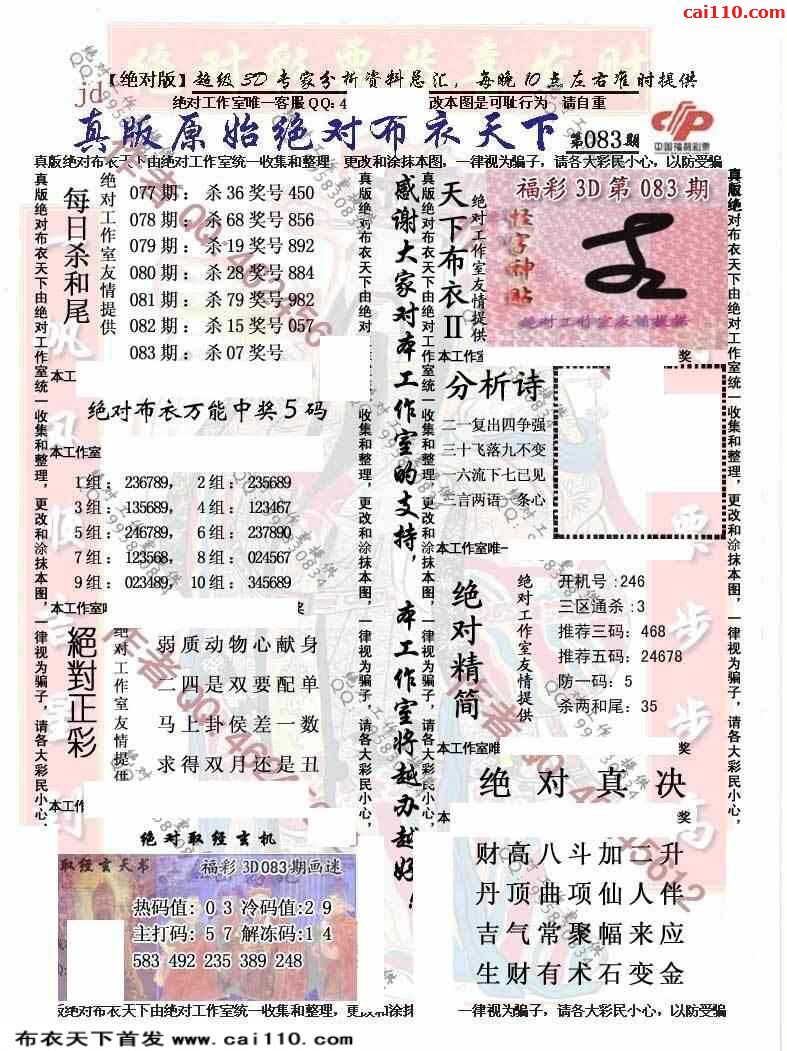 cai110.com
【绝对版】超级3D专家分析资料总汇，每晚10点左右准时提供
jd
绝对工作室唯一客服QQ:4 改本图是可耻行为 请自重
真版原始绝对布衣天下 第083期
中国福利彩票
真版绝对布衣天下由绝对工作室统一收集和整理，更改和涂抹本图，一律视为骗子，请各大彩民小心，以防受骗
每日杀和尾
绝对工作室友情提供
077期：杀36奖号450
078期：杀68奖号856
079期：杀19奖号892
080期：杀28奖号884
081期：杀79奖号982
082期：杀15奖号057
083期：杀07奖号
本工
绝对布衣万能中奖5码
本工作室
1组：236789， 2组：235689
3组：135689， 4组：123467
5组：246789， 6组：237890
7组：123568， 8组：024567
9组：023489， 10组：345689
本工作室
奖
絕對正彩
绝对工作室友情提供
弱质动物心献身
二四是双要配单
马上卦侯差一数
求得双月还是丑
本工作
绝对取经玄机
取经玄天书 福彩3D083期画谜
热码值：03冷码值：29
主打码：57解冻码：14
583 492 235 389 248
感谢大家对本工作室的支持，本工作室将越办越好！
真版绝对布衣天下由绝对工作室统一收集和整理，更改和涂抹本图，一律视为骗子，请各大彩民小心，
天下布衣II
绝对工作室友情提供
福彩3D第083期
怪字神贴
绝对工作室友情提供
本工作室
奖
分析诗
二一复出四争强
三十飞落九不变
一六流下七已见
三言两语一条心
本工作室唯一
绝对精简
绝对工作室友情提供
开机号:246
三区通杀:3
推荐三码：468
推荐五码：24678
防一码：5
杀两和尾：35
本工作室唯
奖
绝对真决
本
奖
财高八斗加二升
丹顶曲项仙人伴
吉气常聚幅来应
生财有术石变金
版绝对布衣天下由绝对工作室统一收集和整理，更改和涂抹 一律视为骗子，请各大彩民小心，以防受骗
布衣天下首发 www.cai110.com